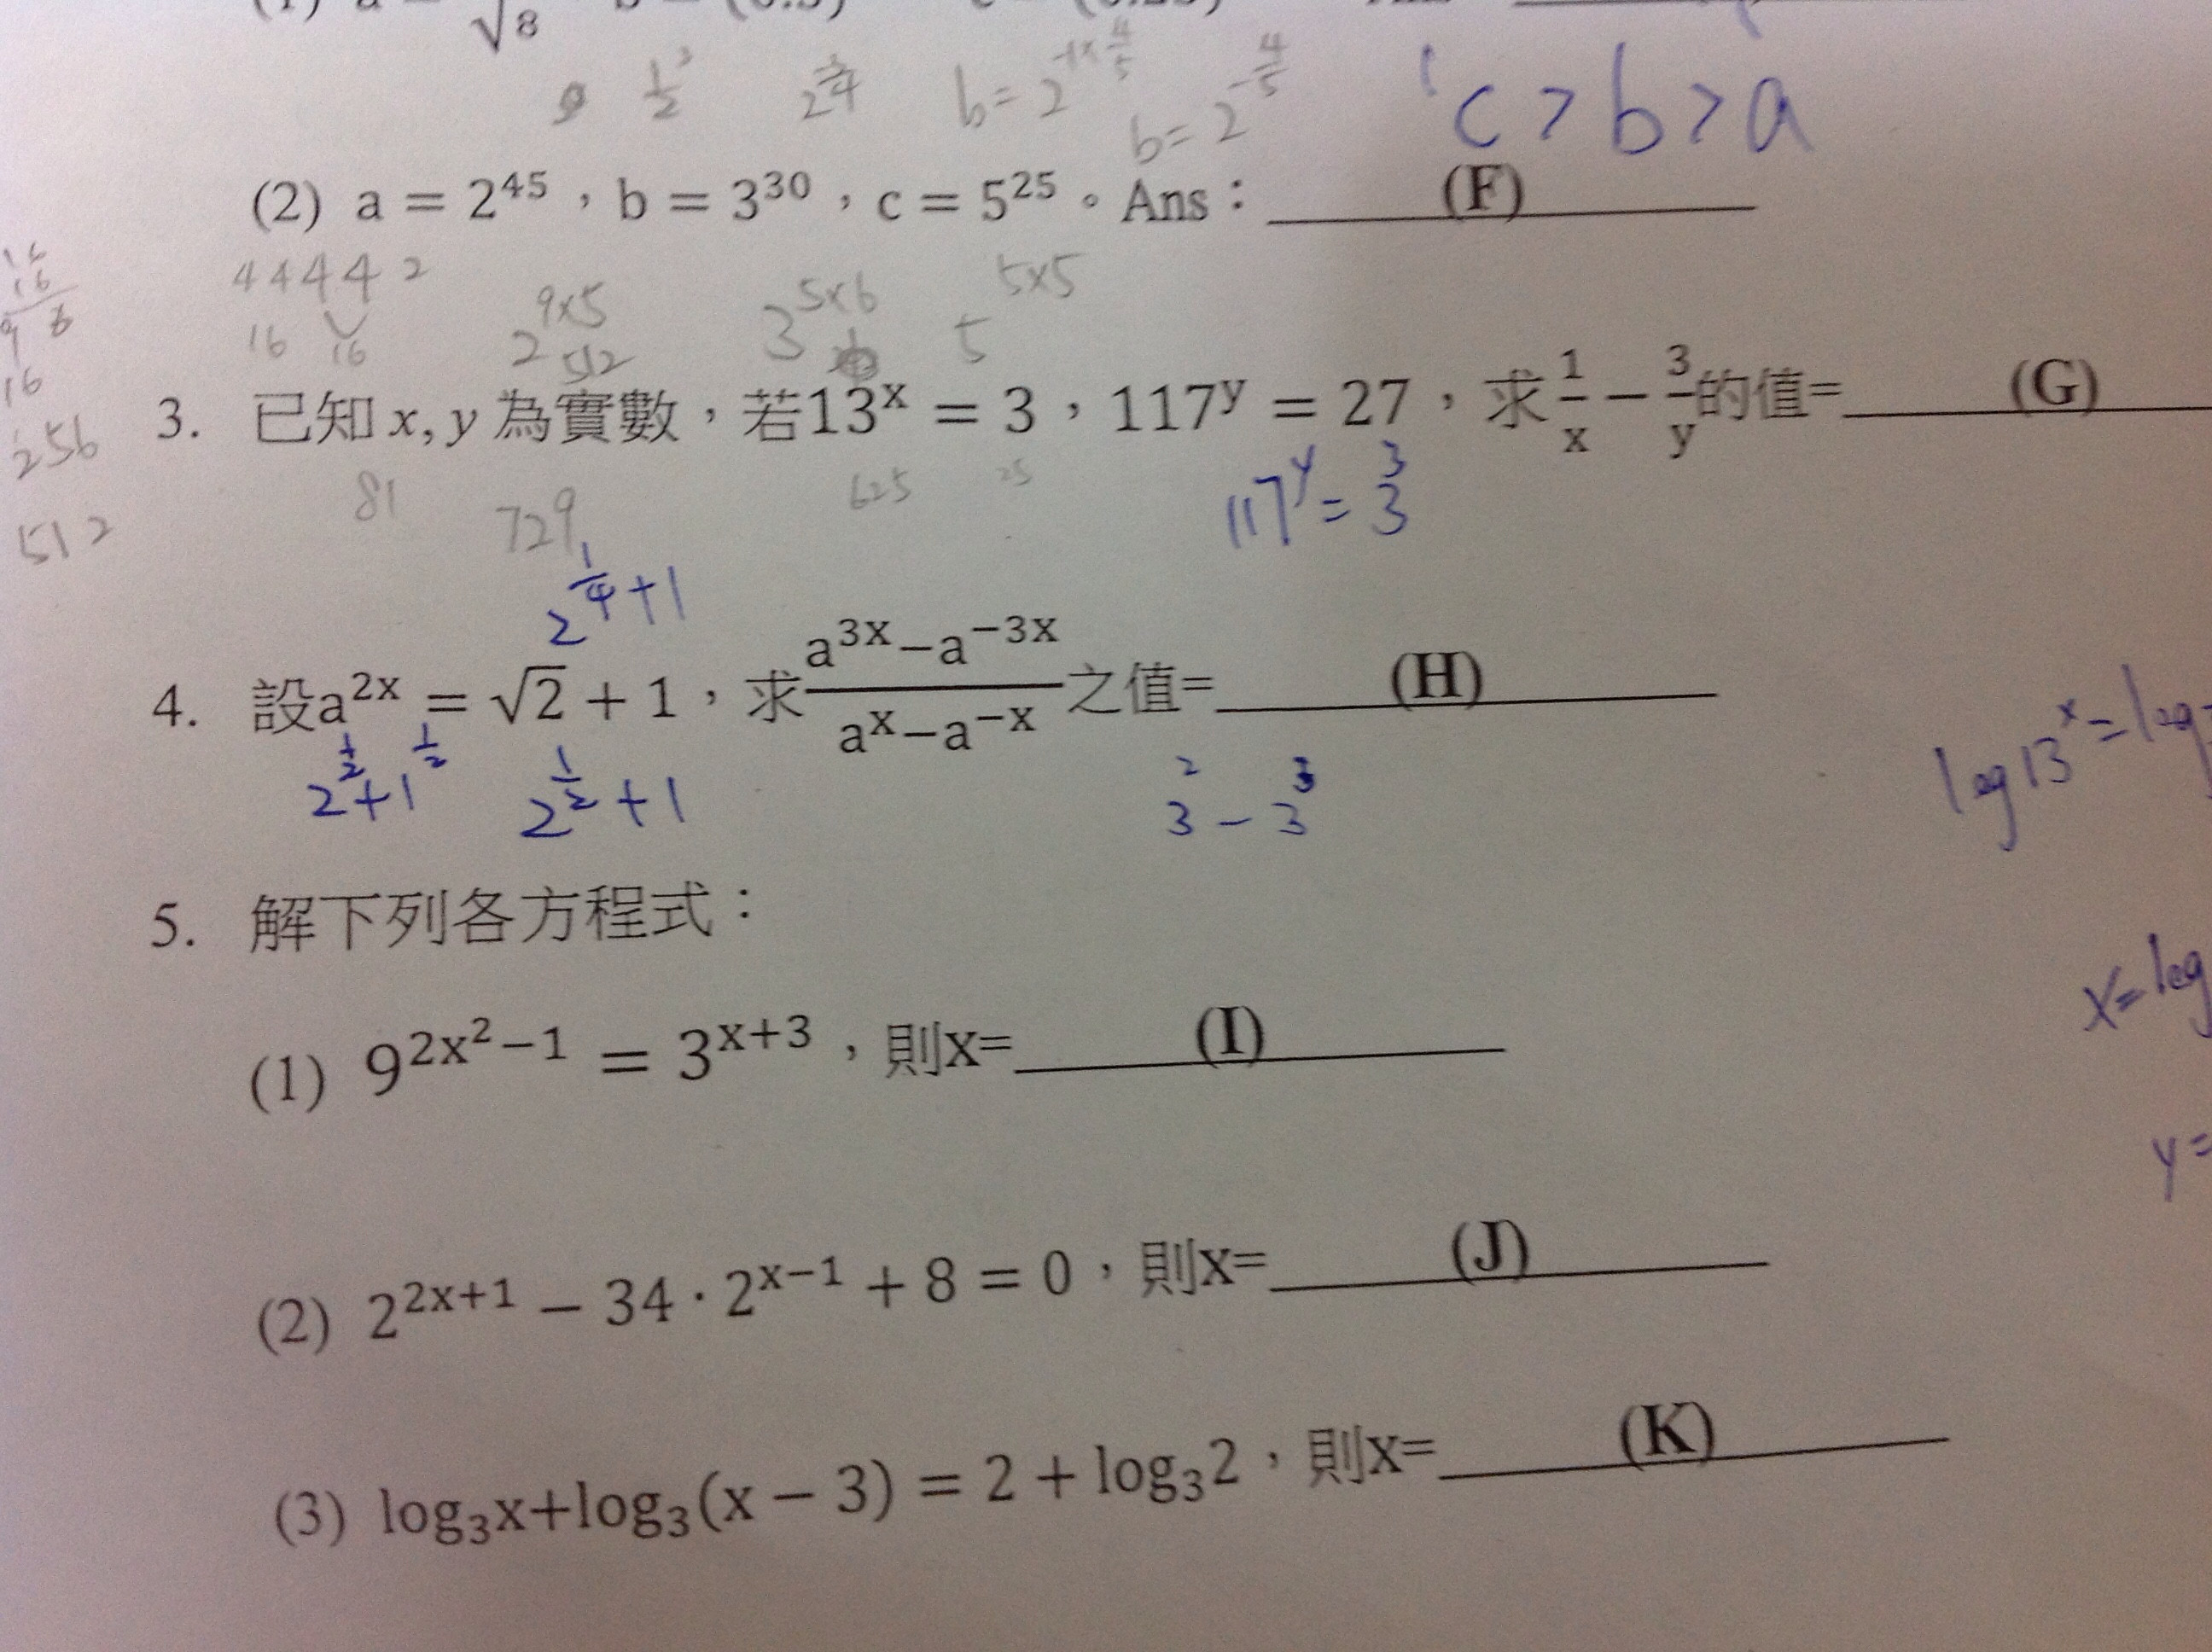 √8
1/2 3
2 3/4
b = 2^(-1×4/5)
b = 2^(-4/5)
c > b > a
(2) a = 2^45，b = 3^30，c = 5^25。Ans：(F)
4 4 4 4 2
16 16
2^(9×5)
512
3^(5×6)
5^(5×5)
16
16
9 6
16
256
512
3. 已知 x, y 為實數，若13^x = 3，117^y = 27，求 1/x − 3/y 的值=(G)
81
729
625
25
117^y = 3^3
2^(1/4) + 1
4. 設a^(2x) = √2 + 1，求 (a^(3x)−a^(−3x))/(a^x−a^(−x)) 之值=(H)
2^(1/2) + 1^(1/2)
2^(1/2) + 1
3^2 − 3^3
log 13^x = log
5. 解下列各方程式：
x = log
(1) 9^(2x^2−1) = 3^(x+3)，則x=(I)
y =
(2) 2^(2x+1) − 34 · 2^(x−1) + 8 = 0，則x=(J)
(3) log₃x+log₃(x − 3) = 2 + log₃2，則x=(K)